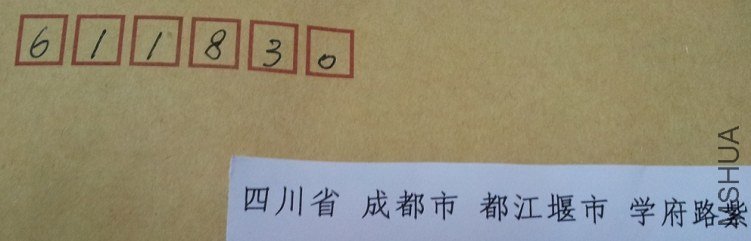 611830
四川省 成都市 都江堰市 学府路紫
MSHUA